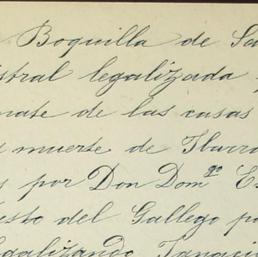 Boquilla de Sa
stral legalizada
mate de las casas
muerte de Ibarro
s por Don Dom.go Es
esto del Gallego po
galizando Ignacio